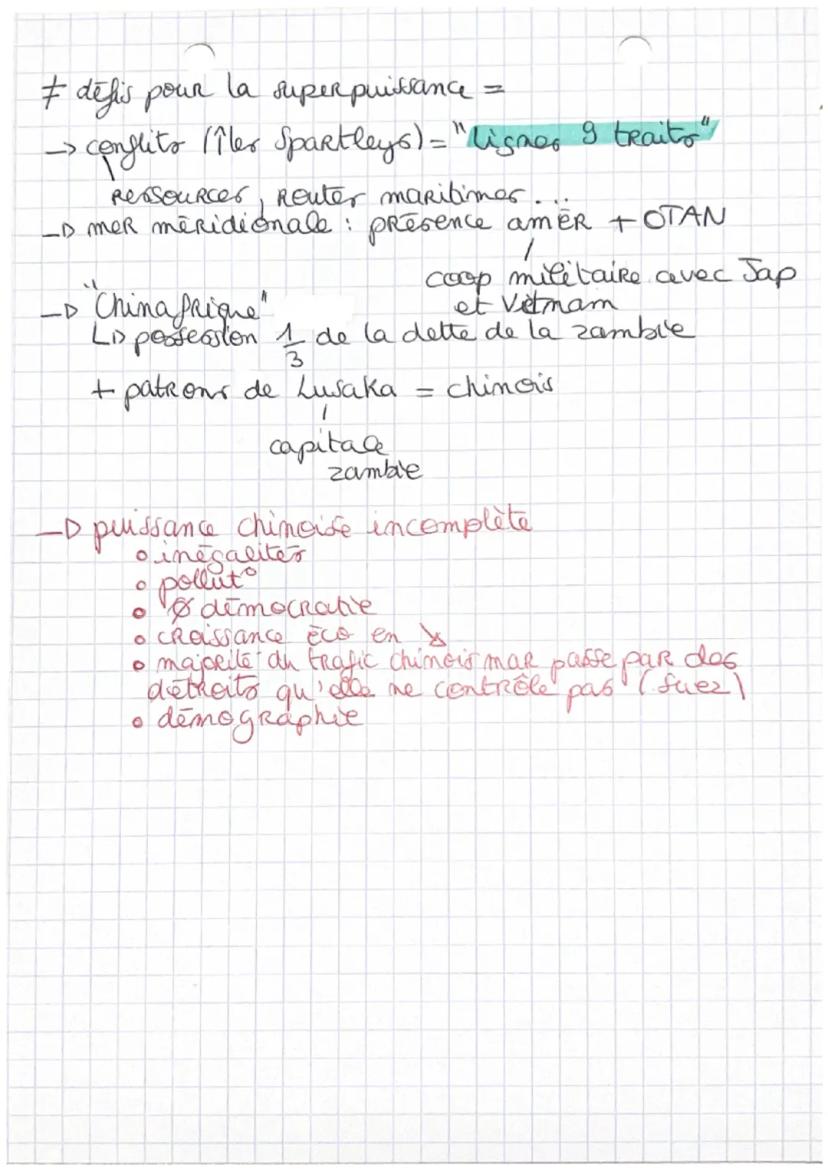 ≠ défis pour la superpuissance =
→ conflits (îles Spartleys) = "lignes 9 traits"
ressources, routes maritimes...
→ mer méridionale : présence amér + OTAN
coop militaire avec Jap
et Vietnam
→ "Chinafrique"
↳ possession 1/3 de la dette de la zambie
+ patrons de Lusaka = chinois
capitale
zambie
→ puissance chinoise incomplète
o inégalités
o pollut°
o Ø démocratie
o croissance éco en ↘
o majorité du trafic chinois mar passe par des
détroits qu'elle ne contrôle pas (suez)
o démographie